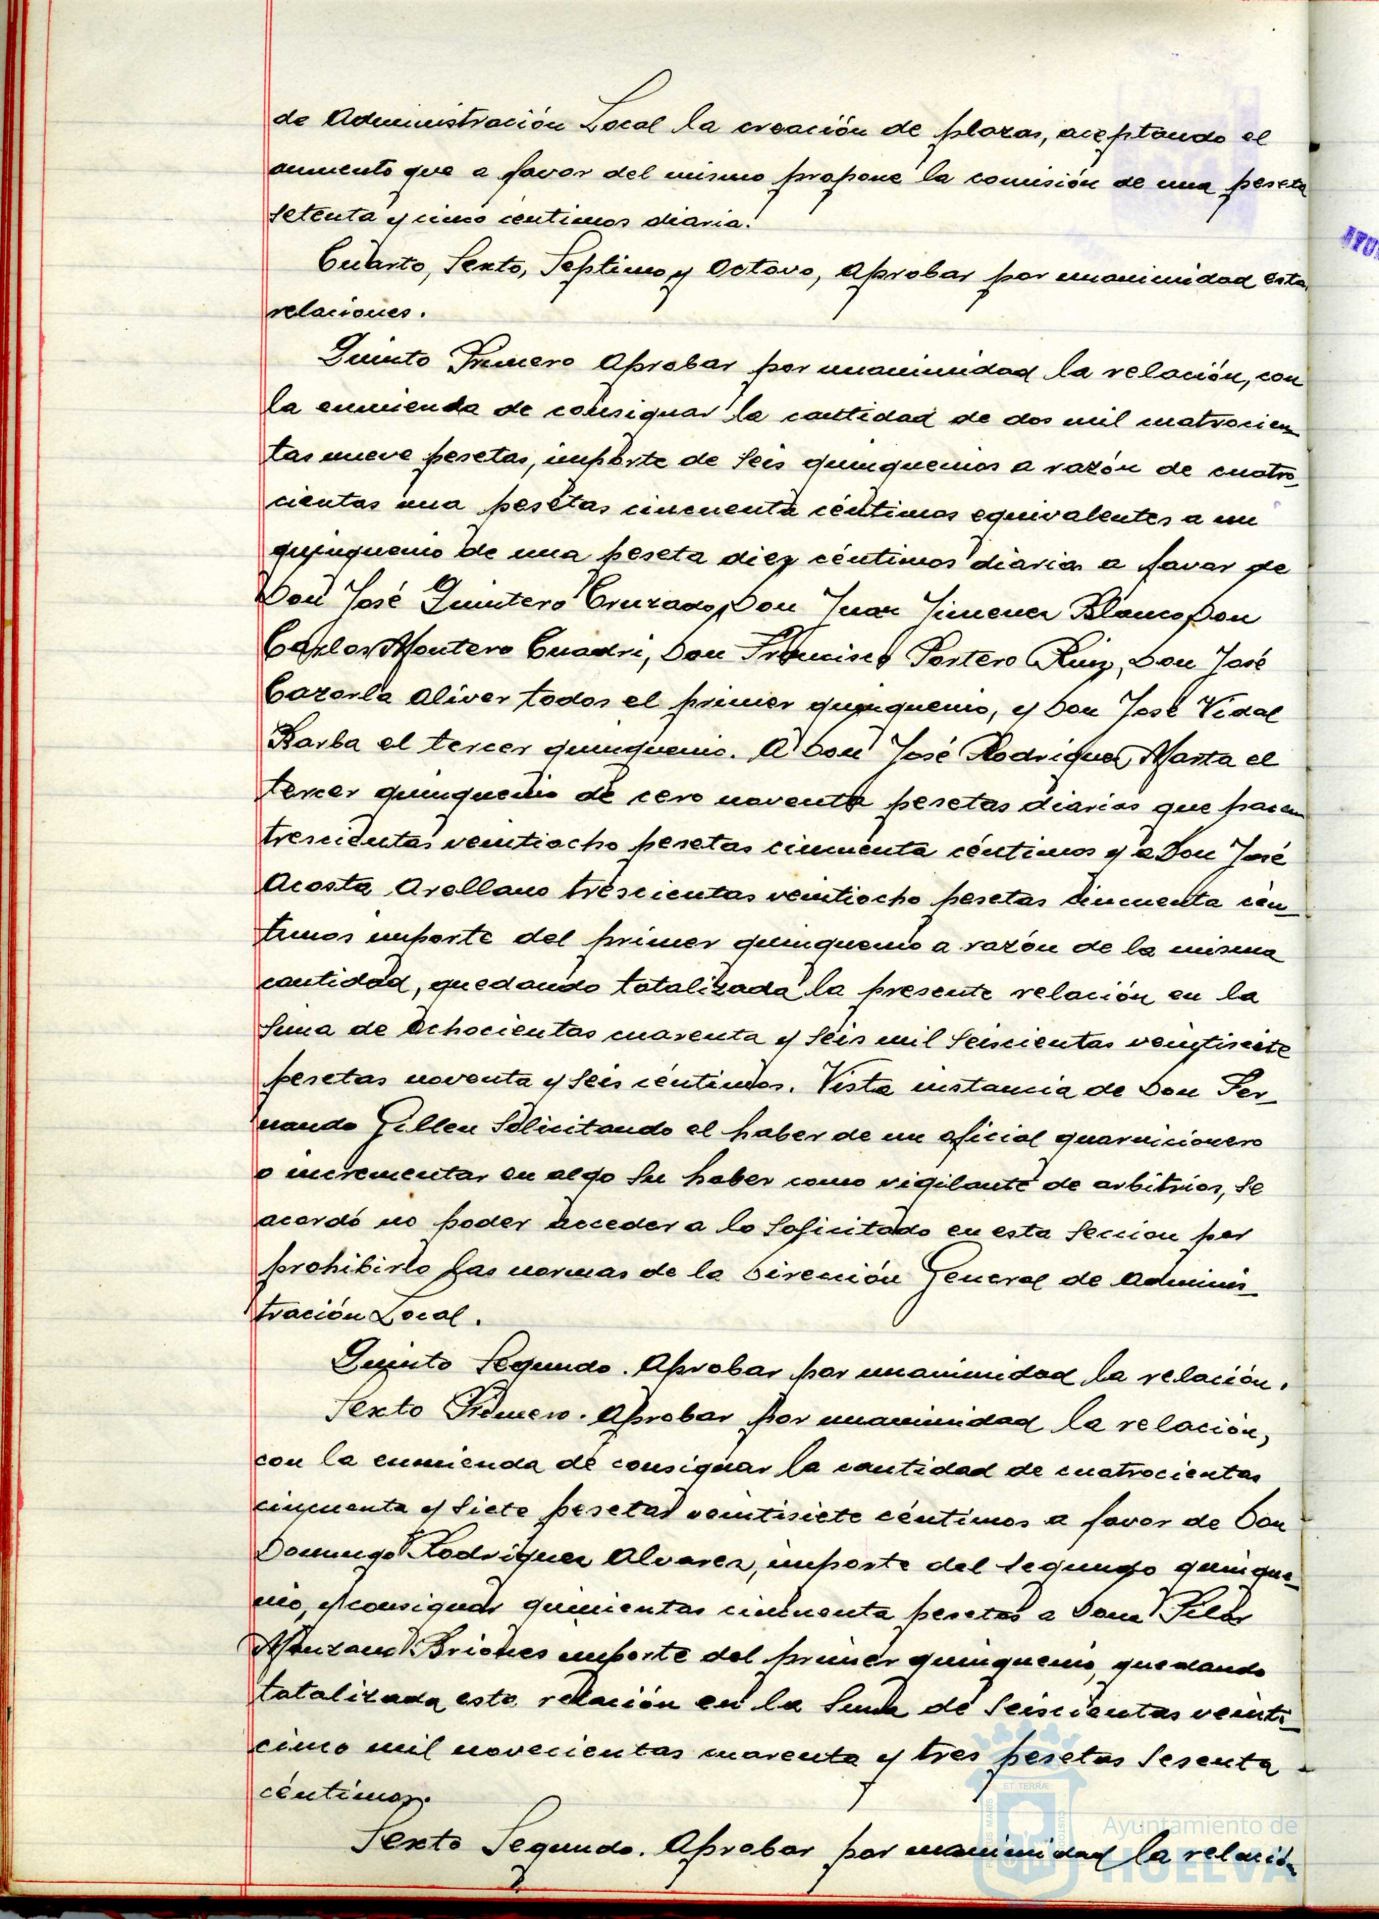 de Administración Local la creación de plazas, aceptando el
aumento que a favor del mismo propone la comisión de una peseta
setenta y cinco centimos diaria.
Cuarto, Sexto, Septimo y Octavo, Aprobar por unanimidad esta
relaciones.
Quinto Primero Aprobar por unanimidad la relación, con
la enmienda de consignar la cantidad de dos mil cuatrocien_
tas nueve pesetas, importe de seis quinquenios a razón de cuatro_
cientas una pesetas cincuenta céntimos equivalentes a un
quinquenio de una peseta diez céntimos diarios a favor de
Don José Quintero Cruzado, Don Juan Jimenez Blanco, Don
Carlos Montero Cuadri, Don Francisco Postero Ruiz, Don José
Cazorla Oliver todos el primer quinquenio, y Don José Vidal
Barba el tercer quinquenio. A Don José Rodriguez Marta el
tercer quinquenio de cero noventa pesetas diarias que hacen
trescientas veintiocho pesetas cincuenta céntimos y a Don José
Acosta Arellano trescientas veintiocho pesetas cincuenta cén_
timos importe del primer quinquenio a razón de la misma
cantidad, quedando totalizada la presente relación en la
suma de ochocientas cuarenta y seis mil seiscientas veintisiete
pesetas noventa y seis céntimos. Vista instancia de Don Fer_
nando Gillen solicitando el haber de un oficial guarnicionero
o incrementar en algo su haber como vigilante de arbitrios, se
acordó no poder acceder a lo solicitado en esta seccion por
prohibirlo las normas de la Dirección General de Adminis_
tración Local.
Quinto Segundo. Aprobar por unanimidad la relación.
Sexto Primero. Aprobar por unanimidad la relación,
con la enmienda de consignar la cantidad de cuatrocientas
cincuenta y siete pesetas veintisiete céntimos a favor de Don
Domingo Rodriguez Alvarez, importe del segundo quinque_
nio, y consignar quinientas cincuenta pesetas a Dona Pilar
Manzano Briones importe del primer quinquenio, quedando
totalizada esta relación en la suma de seiscientas veinti_
cinco mil novecientas cuarenta y tres pesetas sesenta
céntimos.
Sexto Segundo. Aprobar por unanimidad la relación
AYU
Ayuntamiento de
HUELVA